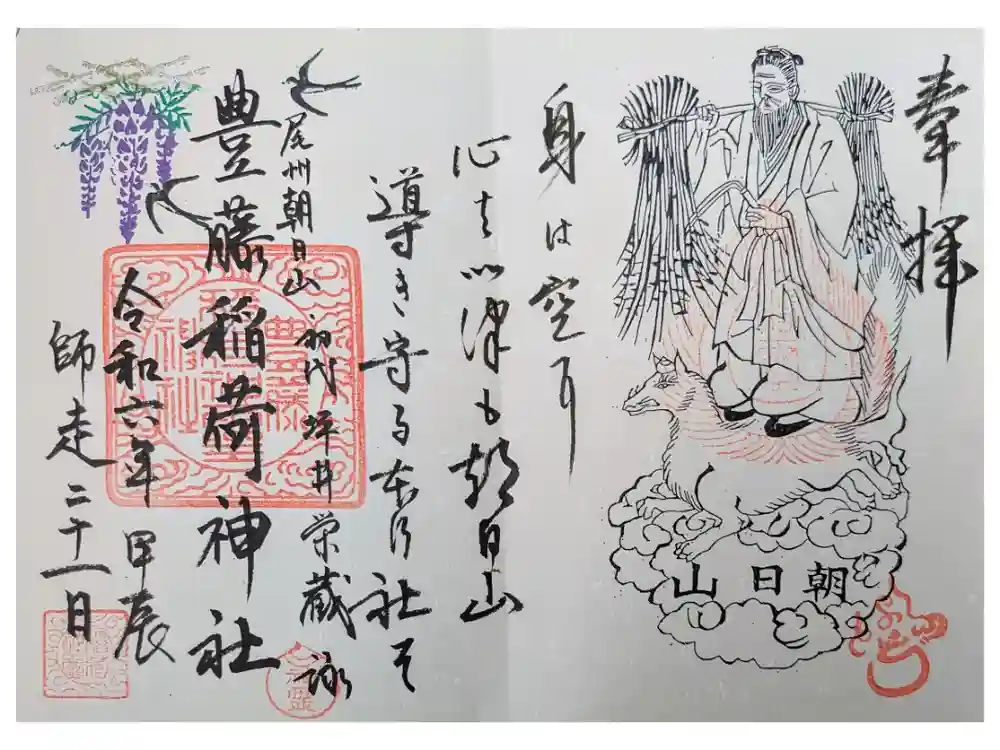 奉拝
朝日山
身は空耳
心 以津も朝日山
導き守る 社そ
尾州朝日山
初代坪井栄蔵詠
豊藤稲荷神社
令和六年甲辰
師走二十一日